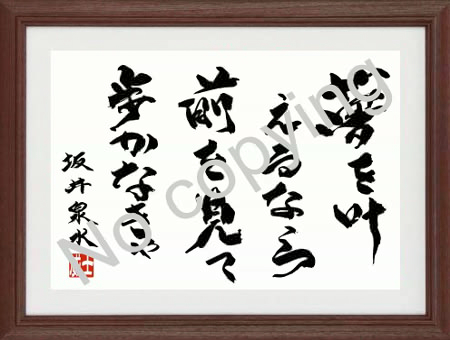 夢を叶
えるなら
前を見て
歩かなきゃ
坂井泉水
No copying